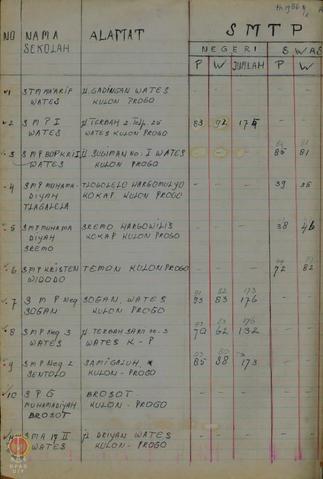 th 1986
S M T P
NO NAMA SEKOLAH ALAMAT NEGERI SWAS
P W JUMLAH P W
1 STM MA'ARIF WATES JL. GADINGAN WATES KULON PROGO - - - - -
2 S M P I WATES JL TERBAH 2 Telp. 25 WATES KULON PROGO 83 92 175 - -
3 SMP BOPKRI II WATES JL SUGIMAN No. I WATES KULON PROGO - - - 85 81
4 SMP MUHAMADIYAH TLAGALELA TLOGOLELO HARGOMULYO KOKAP KULON PROGO - - - 39
5 SMP MUHAMADIYAH SREMO SREMO HARGOWILIS KOKAP KULON PROGO - - - 38 46
6 SMP KRISTEN WIDODO TEMON KULON PROGO - - - 72 82
7 S M P Neg SOGAN SOGAN, WATES KULON PROGO 93 83 176 - -
8 SMP Neg 3 WATES JL. TERBAH SARI No. 3 WATES K - P 70 62 132 - -
9 SMP Neg 2 SENTOLO SAMIGALUH KULON - PROGO 85 88 173 - -
10 S P G MUHAMADIYAH BROSOT BROSOT KULON - PROGO - - - - -
SMA 17 II WATES JL DRIYAN WATES KULON - PROGO - - - - -
BPAD DIY